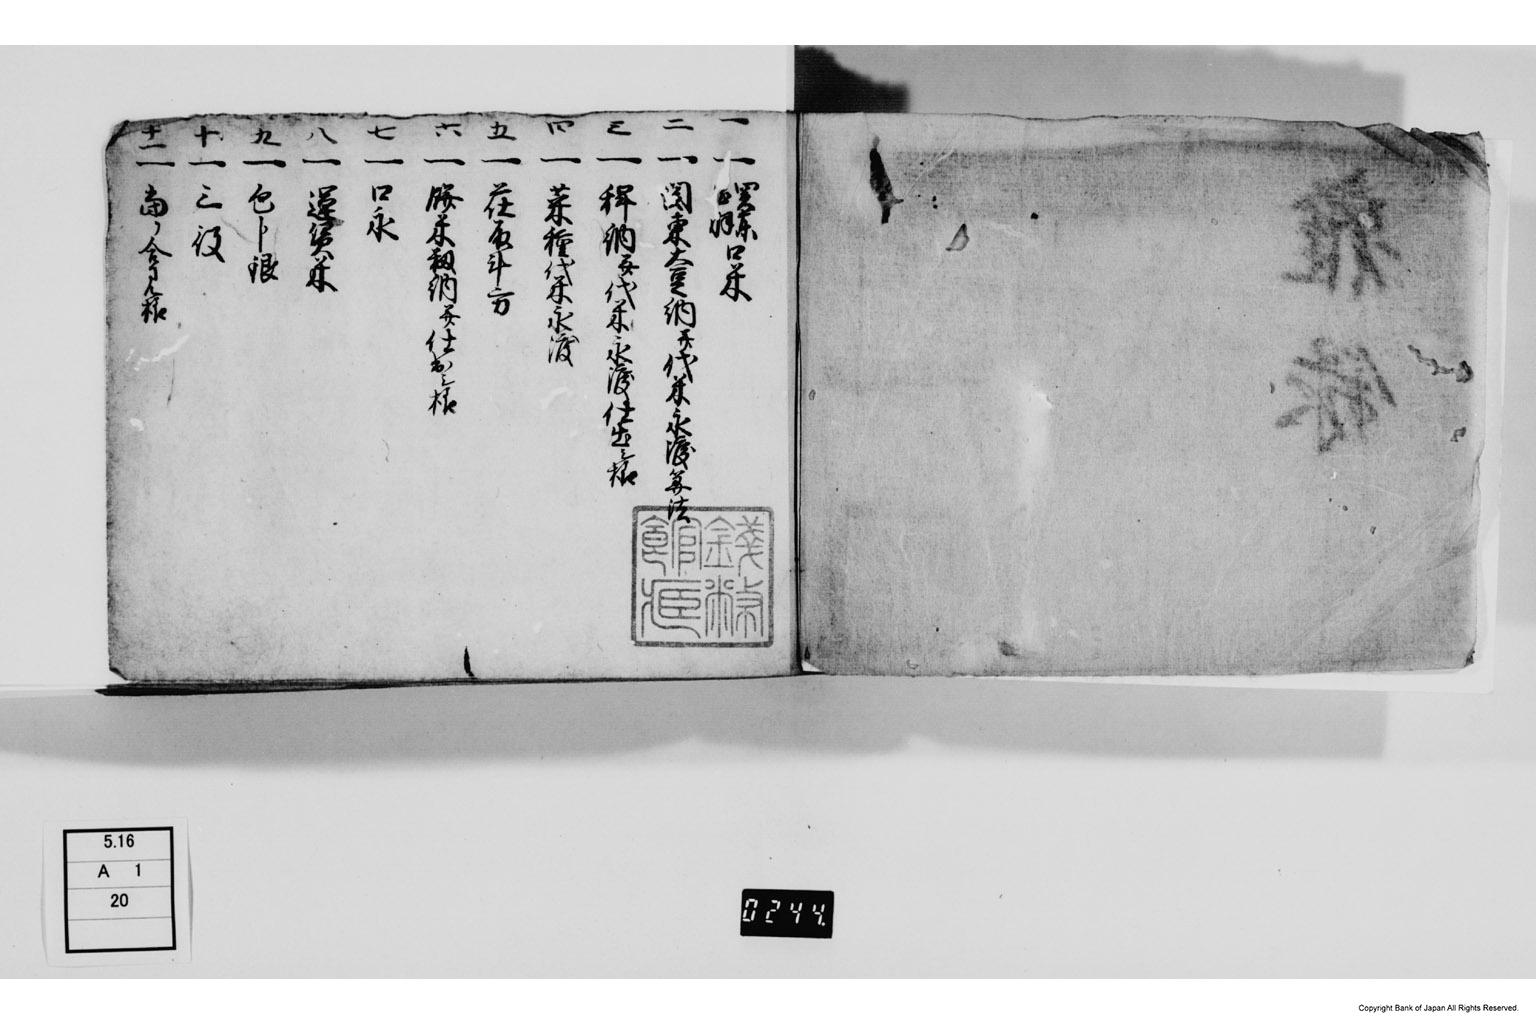 一 一 関東口米
二 一 関東大豆納并代米永渡算法
三 一 稗納并代米永渡仕出之様
四 一 菜種代米永渡
五 一 荏取斗方
六 一 餅米籾納并仕出之様
七 一 口永
八 一 運賃米
九 一 包分銀
十 一 三役
十一 一
錢幣館蔵
5.16
A 1
20
0244.
Copyright Bank of Japan All Rights Reserved.